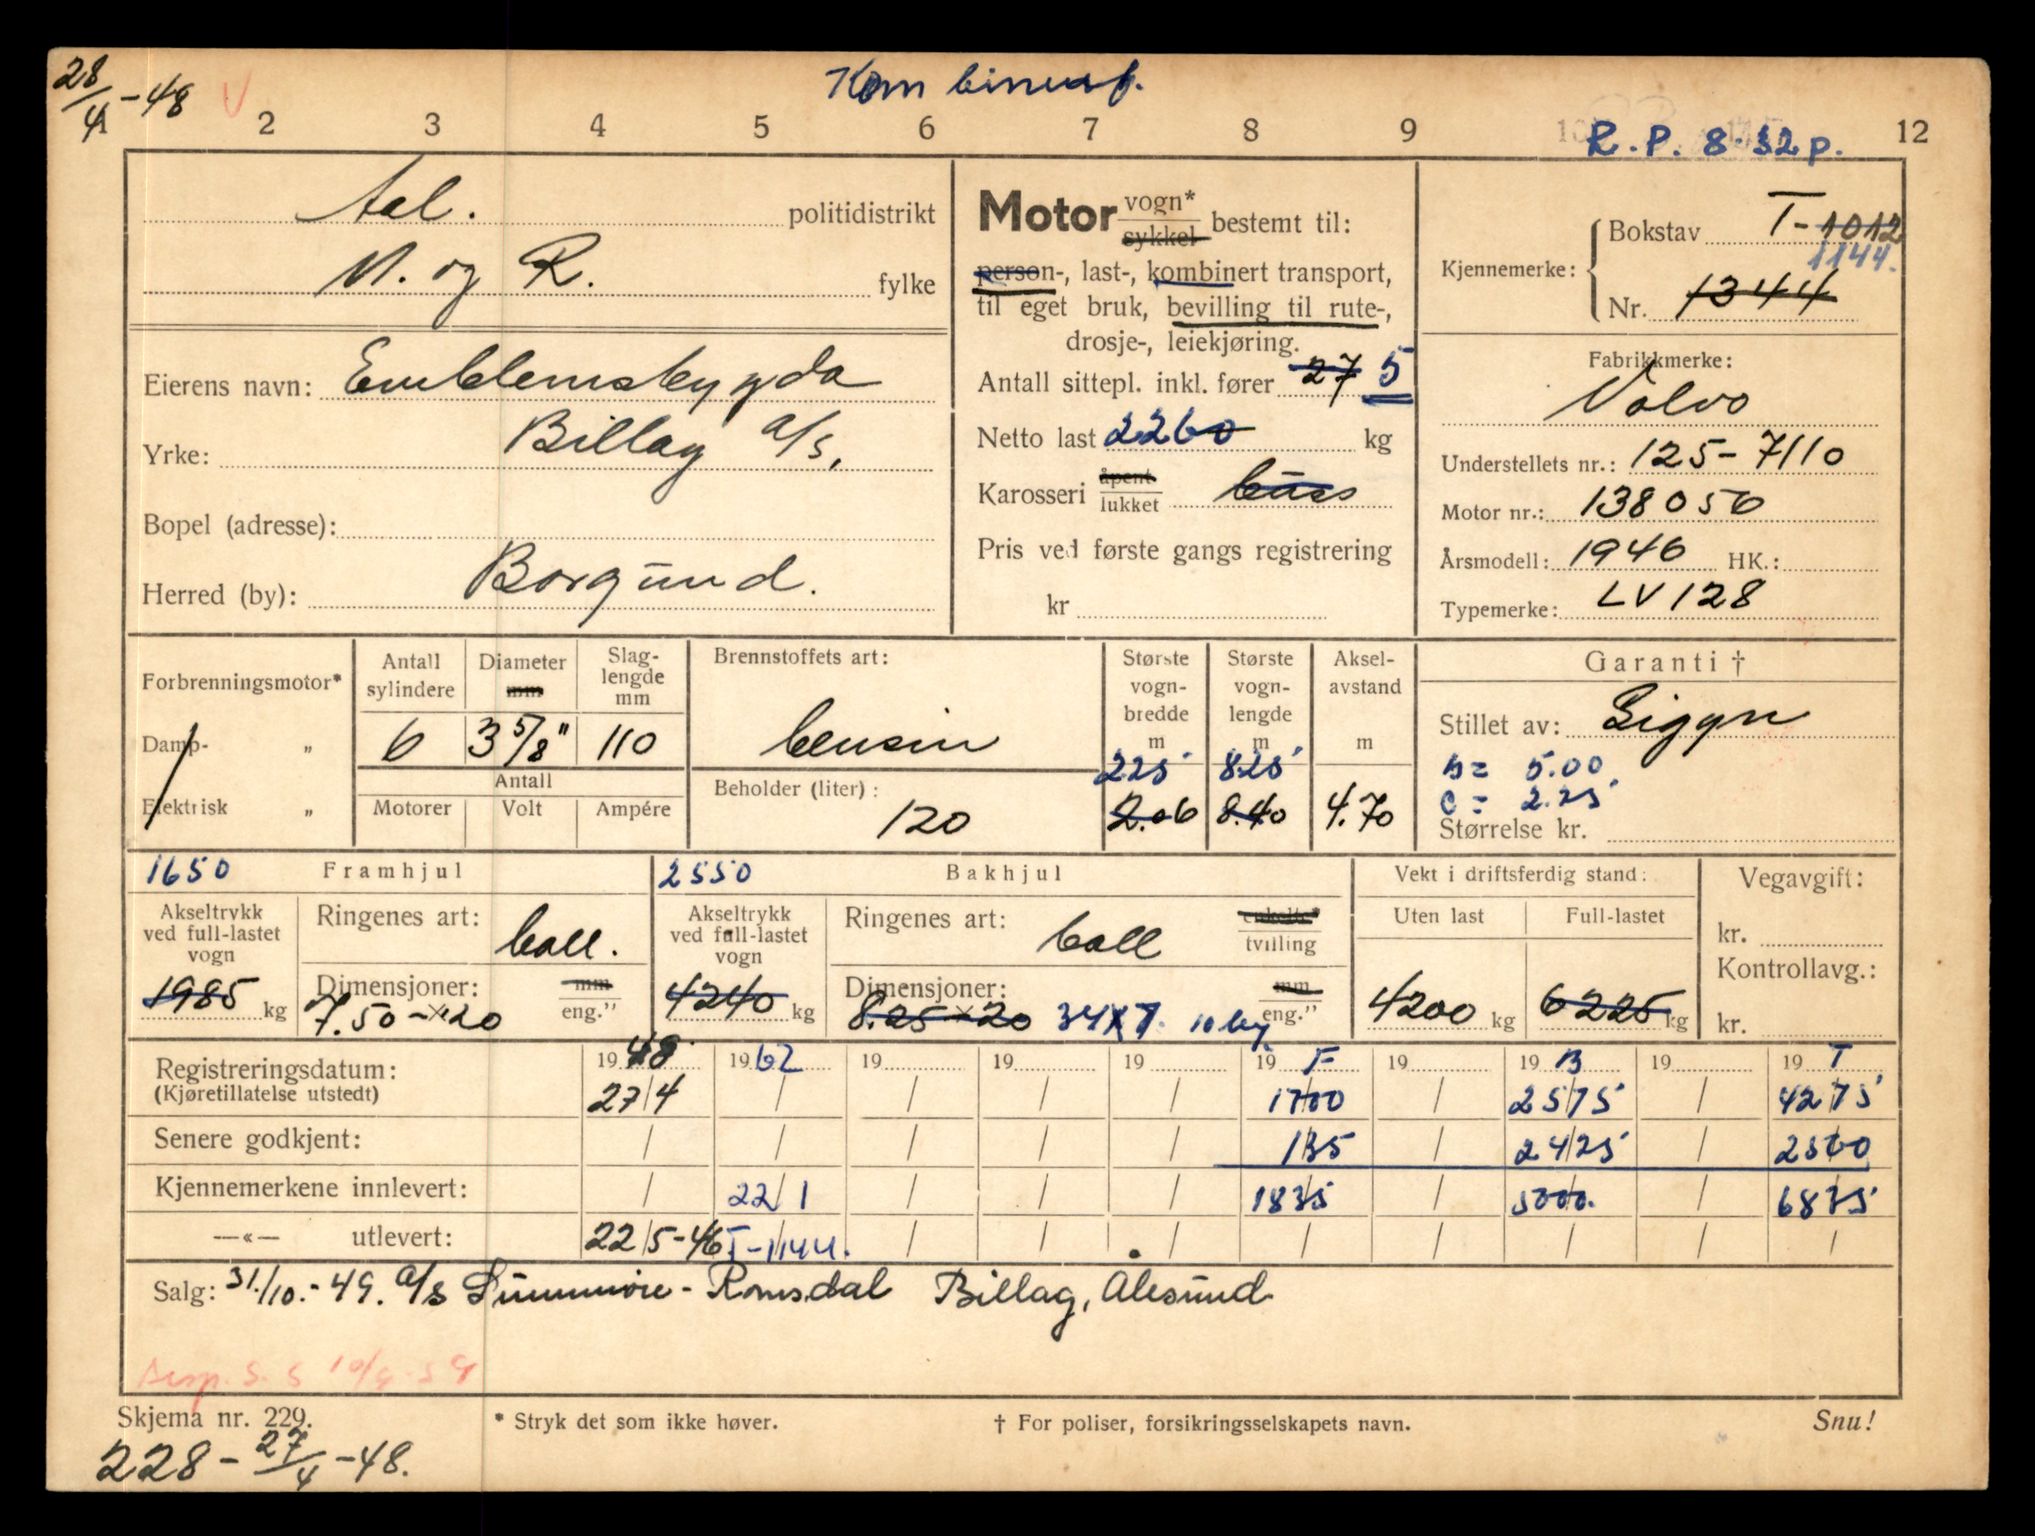 28/4 - 48 V Kombinert.
2 3 4 5 6 7 8 9 12
R. P. 8-32 p.
Aal. politidistrikt
M. og R. fylke
Eierens navn: Emblemsbygda
Yrke: Billag a/s.
Bopel (adresse):
Herred (by): Borgund.
Motor vogn* sykkel bestemt til:
person-, last-, kombinert transport,
til eget bruk, bevilling til rute-,
drosje-, leiekjøring.
Antall sittepl. inkl. fører 27 5
Netto last 2260 kg
Karosseri åpent lukket buss
Pris ved første gangs registrering
kr
Kjennemerke:
Bokstav T-1012
1144.
Nr. 1344
Fabrikkmerke:
Volvo
Understellets nr.: 125-7110
Motor nr.: 138050
Årsmodell: 1946 HK.:
Typemerke: LV128
Forbrenningsmotor*
Damp- „
Elektrisk „
Antall sylindere
6
Diameter mm
3 5/8"
Slaglengde mm
110
Antall
Motorer Volt Ampére
Brennstoffets art:
bensin
Beholder (liter):
120
Største vognbredde m
225
2.06
Største vognlengde m
825
8.40
Akselavstand m
4.70
Garanti †
Stillet av: Sigyn
B= 5.00
C= 2.25
Størrelse kr.
1650 Framhjul
Akseltrykk ved full-lastet vogn
1985 kg
Ringenes art: ball.
Dimensjoner: mm eng."
7.50-×20
2550 Bakhjul
Akseltrykk ved full-lastet vogn
4240 kg
Ringenes art: ball enkelte* tvilling
Dimensjoner: mm eng."
8.25×20 34x7. 10 lag
Vekt i driftsferdig stand:
Uten last Full-lastet
4200 kg 6225 kg
Vegavgift:
kr.
Kontrollavg.:
kr.
Registreringsdatum: 1948 1962 19 19 19 19 F 19 19 B 19 19 T
(Kjøretillatelse utstedt) 27/4 / / / / 1700 / 2575 / 4275
Senere godkjent: / / / / / 135 / 2425 / 2560
Kjennemerkene innlevert: / 22/1 / / / 1835 / 5000. / 6835
—«— utlevert: 22/5-46 T-1144. / / / / / / / /
Salg: 31./10.-49. a/s Sunnmøre-Romsdal Billag, Ålesund
Skjema nr. 229. * Stryk det som ikke høver. † For poliser, forsikringsselskapets navn. Snu!
228 - 27/4 - 48.